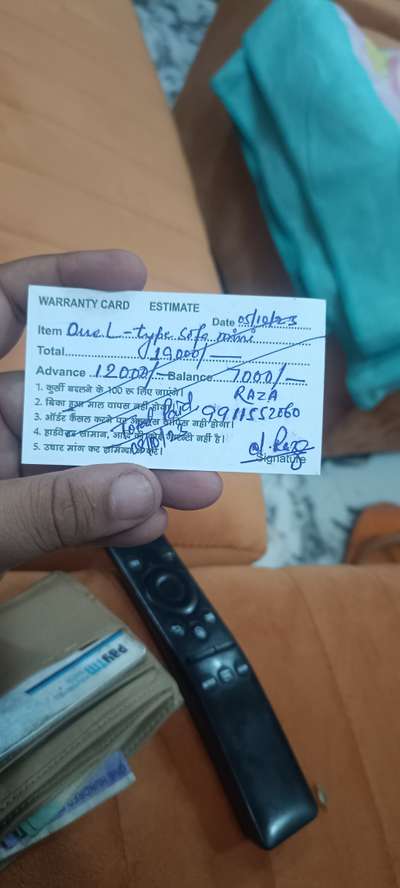 WARRANTY CARD ESTIMATE
Date 05/10/23
Item One L-type sofa mini
Total 19000/-
Advance 12000/- Balance 7000/-
1. कुर्सी बदलने के 100 रू लिए जाएंगे।
RAZA
2. बिका हुआ माल वापस नही होगा।
9911552060
3. ऑर्डर कैंसल करने पर एडवांस वापिस नही होगा।
Total Paid
4. हार्डवेयर सामान, की गारन्टी नहीं है।
5. उधार मांग कर शर्मिन्दा
Raza
Signature
PAYTM